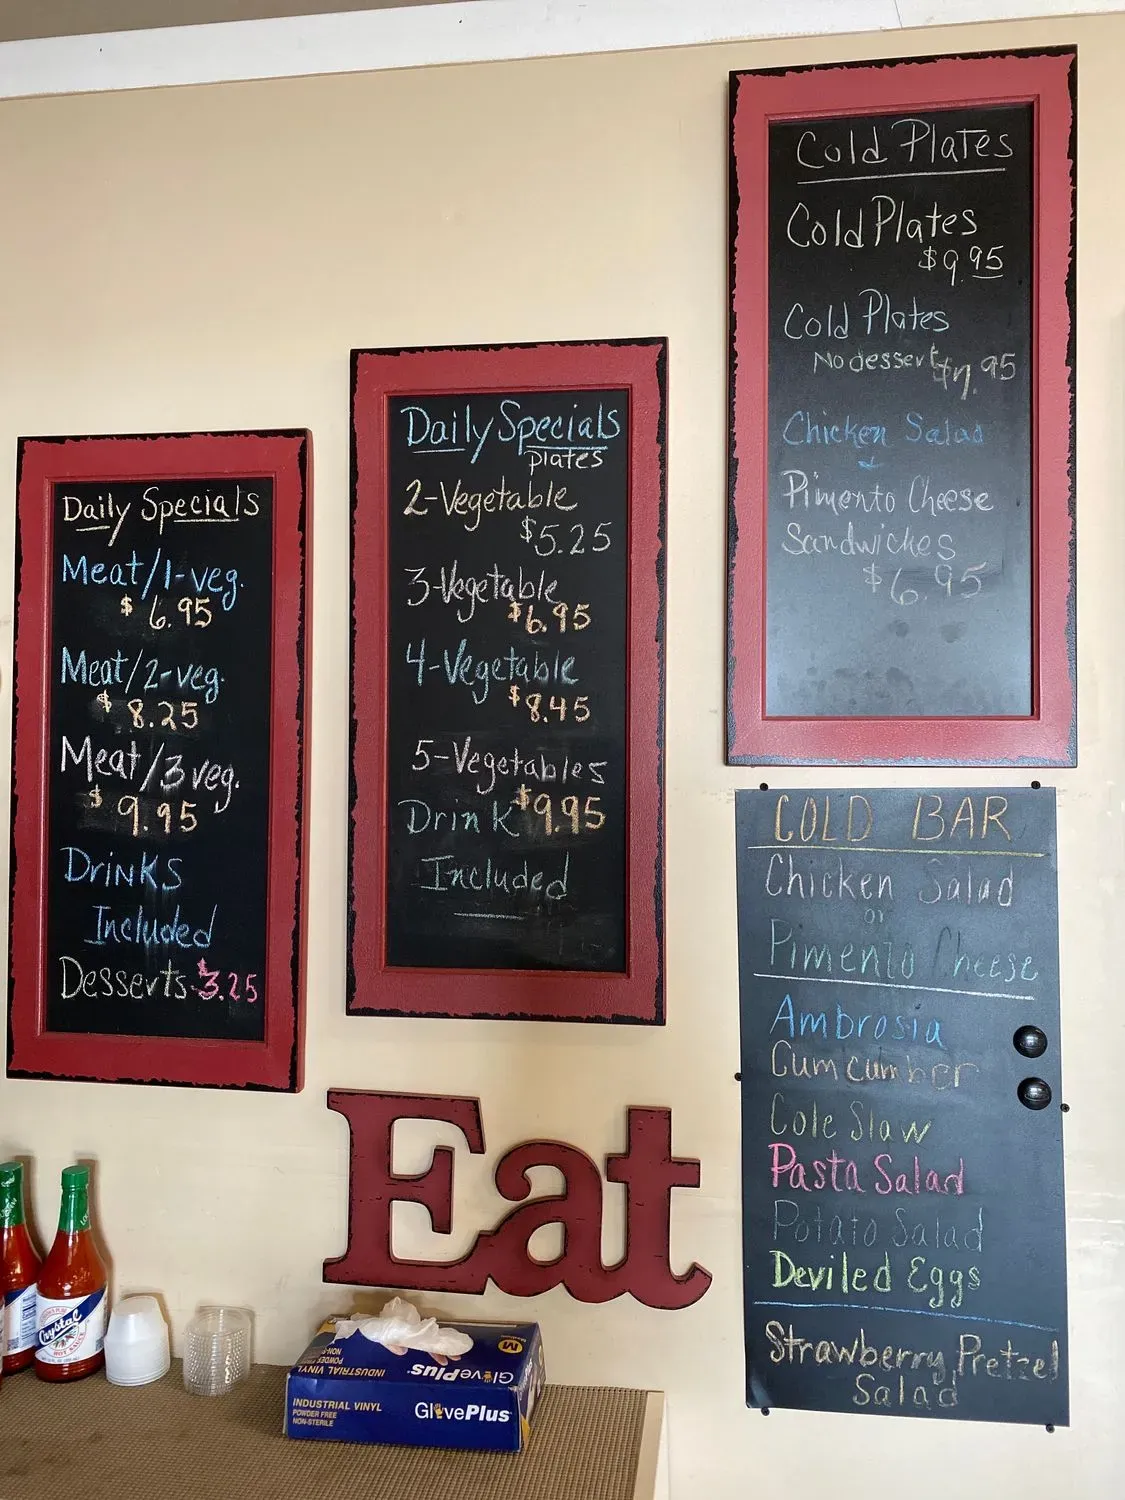 Daily Specials
Meat/1-veg.
$6.95
Meat/2-veg.
$8.25
Meat/3 veg.
$9.95
Drinks
Included
Desserts-$3.25
Daily Specials
plates
2-Vegetable
$5.25
3-Vegetable
$6.95
4-Vegetable
$8.45
5-Vegetables
Drink $9.95
Included
Cold Plates
Cold Plates
$9.95
Cold Plates
No dessert $7.95
Chicken Salad
&
Pimento Cheese
Sandwiches
$6.95
COLD BAR
Chicken Salad
or
Pimento Cheese
Ambrosia
Cumcumber
Cole Slaw
Pasta Salad
Potato Salad
Deviled Eggs
Strawberry Pretzel
Salad
Eat
Crystal
HOT SAUCE
M
GlovePlus
INDUSTRIAL VINYL
POWDER FREE
NON-STERILE
INDUSTRIAL VINYL
POWDER FREE
NON-STERILE
GlovePlus